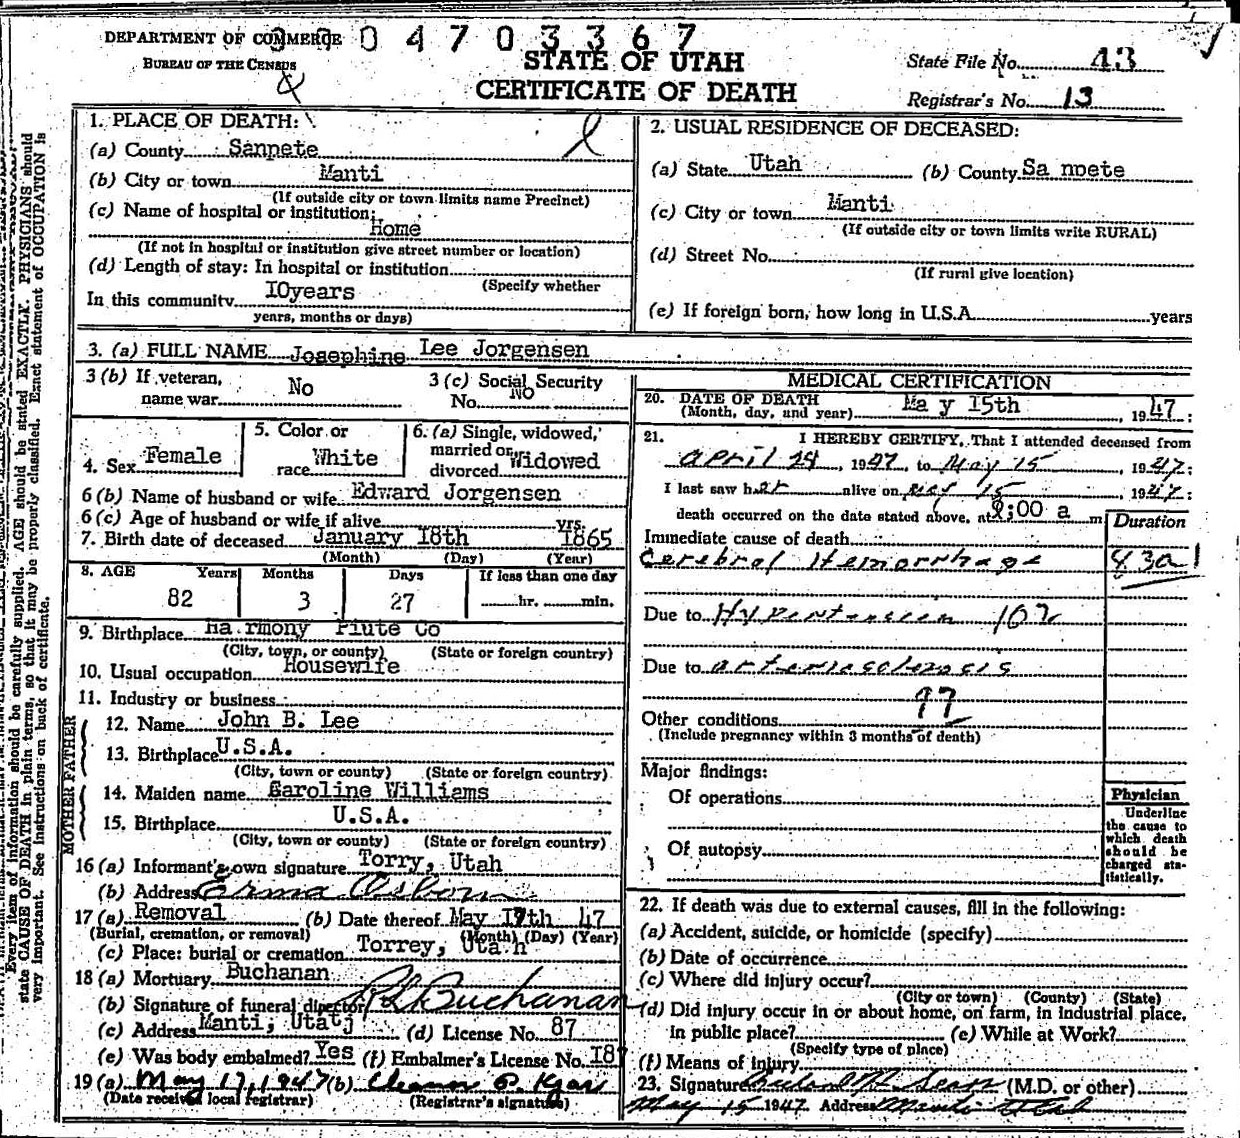 DEPARTMENT OF COMMERCE
BUREAU OF THE CENSUS
0 4 7 0 3 3 6 7
STATE OF UTAH
CERTIFICATE OF DEATH
State File No. 43
Registrar's No. 13
Every item of information should be carefully supplied. AGE should be stated EXACTLY. PHYSICIANS should
state CAUSE OF DEATH in plain terms, so that it may be properly classified. Exact statement of OCCUPATION is
very important. See instructions on back of certificate.
1. PLACE OF DEATH:
(a) County Sanpete
(b) City or town Manti
(If outside city or town limits name Precinct)
(c) Name of hospital or institution:
Home
(If not in hospital or institution give street number or location)
(d) Length of stay: In hospital or institution
(Specify whether
In this community 10years
years, months or days)
2. USUAL RESIDENCE OF DECEASED:
(a) State Utah (b) County Sa npete
(c) City or town Manti
(If outside city or town limits write RURAL)
(d) Street No.
(If rural give location)
(e) If foreign born, how long in U.S.A. years
3. (a) FULL NAME Josephine Lee Jorgensen
3 (b) If veteran, name war No
3 (c) Social Security No. NO
4. Sex Female
5. Color or race White
6. (a) Single, widowed, married or divorced Widowed
6 (b) Name of husband or wife Edward Jorgensen
6 (c) Age of husband or wife if alive yrs.
7. Birth date of deceased January 18th 1865
(Month) (Day) (Year)
8. AGE Years Months Days If less than one day
82 3 27 hr. min.
9. Birthplace Ha.rmony Piute Co
(City, town, or county) (State or foreign country)
10. Usual occupation Housewife
11. Industry or business
FATHER
12. Name John B. Lee
13. Birthplace U.S.A.
(City, town or county) (State or foreign country)
MOTHER
14. Maiden name Caroline Williams
15. Birthplace U.S.A.
(City, town or county) (State or foreign country)
16 (a) Informant's own signature Torry, Utah
(b) Address Erma Osborn
17 (a) Removal (b) Date thereof May 17th 47
(Burial, cremation, or removal) (Month) (Day) (Year)
(c) Place: burial or cremation Torrey, Uta h
18 (a) Mortuary Buchanan
(b) Signature of funeral director Buchanan
(c) Address Manti, Utah (d) License No. 87
(e) Was body embalmed? Yes (f) Embalmer's License No. 187
19 (a) May 17, 1947 (b) Eleanor P.
(Date received local registrar) (Registrar's signature)
MEDICAL CERTIFICATION
20. DATE OF DEATH
(Month, day, and year) Ma y 15th, 1947:
21. I HEREBY CERTIFY, That I attended deceased from
April 24, 1947, to May 15, 1947;
I last saw her alive on May 15, 1947;
death occurred on the date stated above, at :00 a m
Duration
Immediate cause of death
Cerebral Hemorrhage
Due to Hypertension 102
Due to arteriosclerosis
97
Other conditions
(Include pregnancy within 3 months of death)
Major findings:
Of operations
Of autopsy
Physician
Underline
the cause to
which death
should be
charged sta-
tistically.
22. If death was due to external causes, fill in the following:
(a) Accident, suicide, or homicide (specify)
(b) Date of occurrence
(c) Where did injury occur?
(City or town) (County) (State)
(d) Did injury occur in or about home, on farm, in industrial place,
in public place? (e) While at Work?
(Specify type of place)
(f) Means of injury
23. Signature (M.D. or other)
May 15 1947 Address Manti Utah